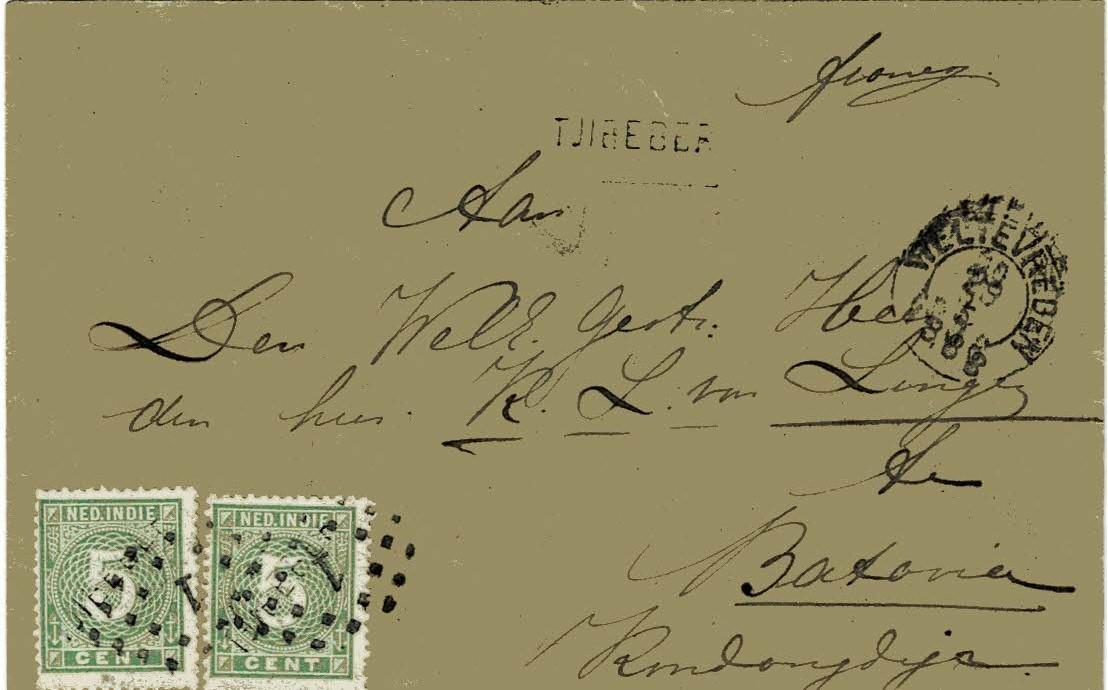 franco.
TJIBEBER
Aan
Den WelE. Gestr. Heer
den heer K. L. van
te
Batavia
WELTEVREDEN
NED. INDIE
5
CENT
NED. INDIE
5
CENT
1